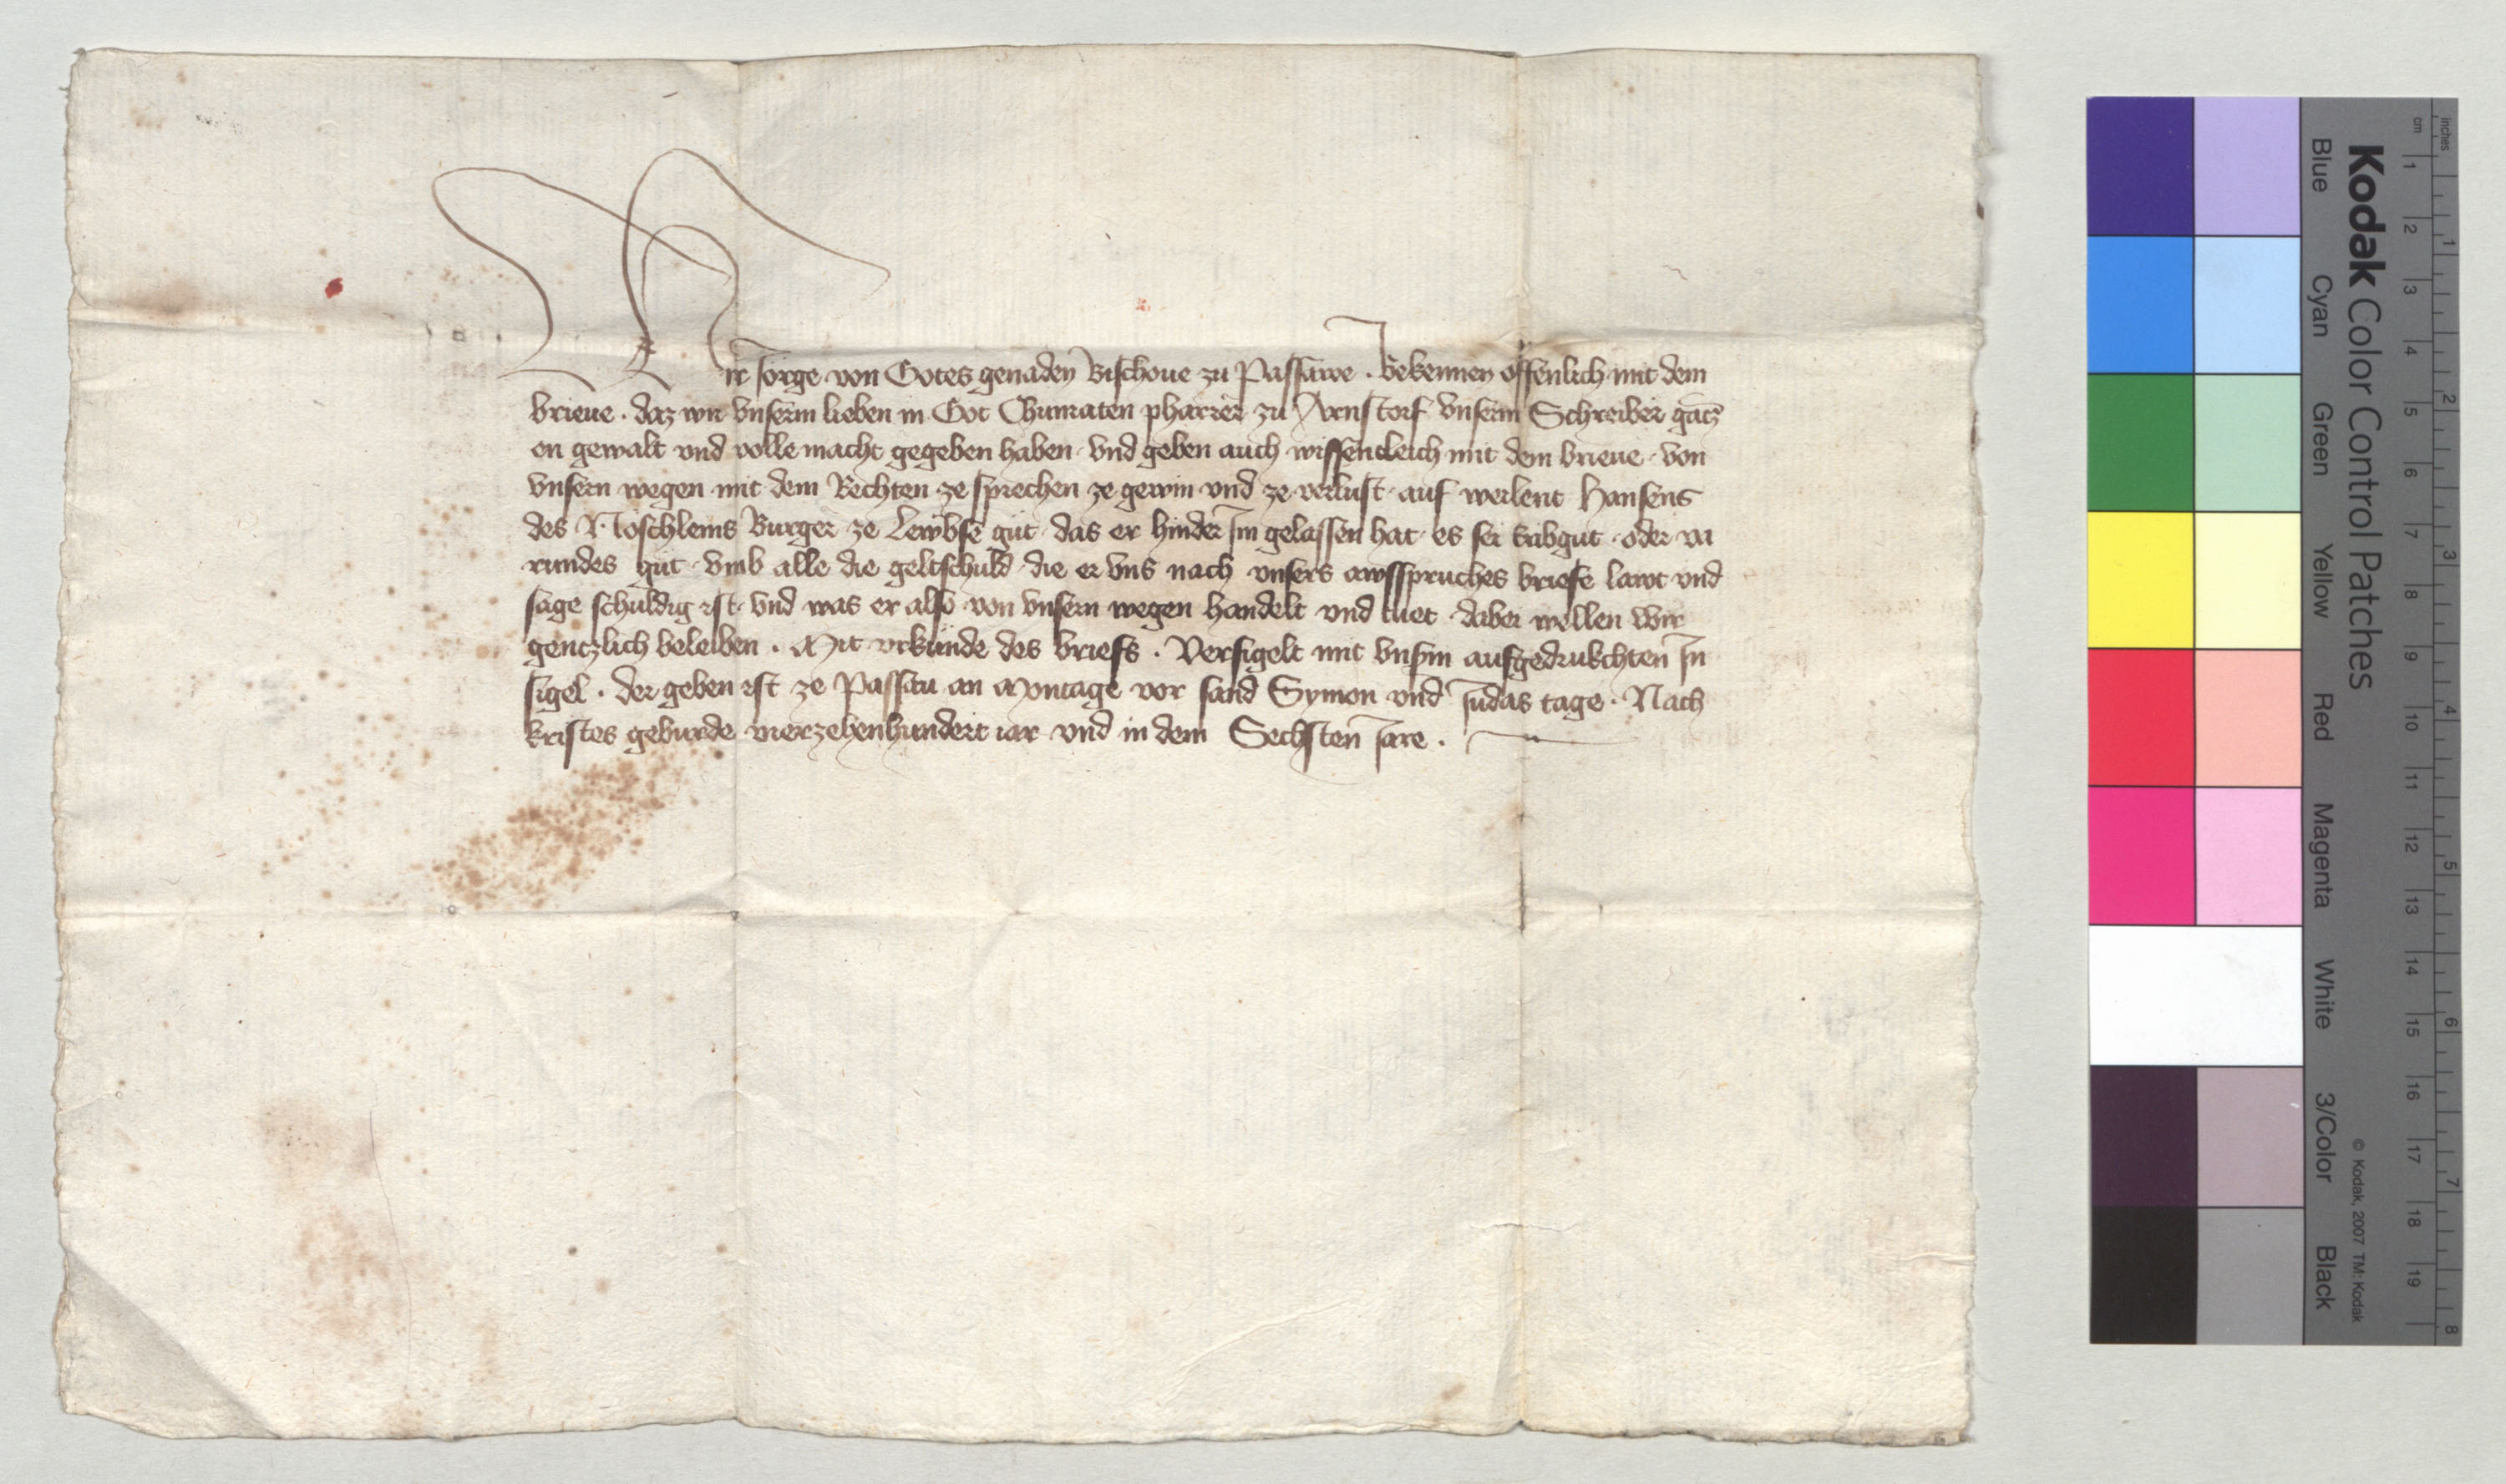 Wir Jörge von Gotes genaden Bischoue zu Passawe . Bekennen offenlich mit dem
brieue . daz wir vnserm lieben in Got Chunraten pharrer zu Arnstorf vnserm Schreiber gancz
en gewalt vnd volle macht gegeben haben vnd geben auch wissentleich mit dem brieue von
vnsern wegen mit dem Rechten ze sprechen ze gewin vnd ze verlust auf weilent Hansens
des Noschleins Burger ze gut das er hinder Im gelassen hat es sei Erbgut oder va
rundes gut vmb alle die geltschuld die er vns nach vnsers awsspruches briefe lawt vnd
sage schuldig ist vnd was er also von vnsern wegen handelt vnd tuet dabei wellen wir
genczlich beleiben . Mit vrkunde des briefs . Versigelt mit vnserm aufgedrukchten In
sigel . der geben ist ze Passau an Montage vor sand Symon vnd Judas tage . Nach
kristes geburde vierzehenhundert iar vnd in dem Sechsten Jare .
Kodak Color Control Patches
Blue Cyan Green Yellow Red Magenta White 3/Color Black
© Kodak, 2007 TM: Kodak
cm 1 2 3 4 5 6 7 8 9 10 11 12 13 14 15 16 17 18 19
inches 1 2 3 4 5 6 7 8